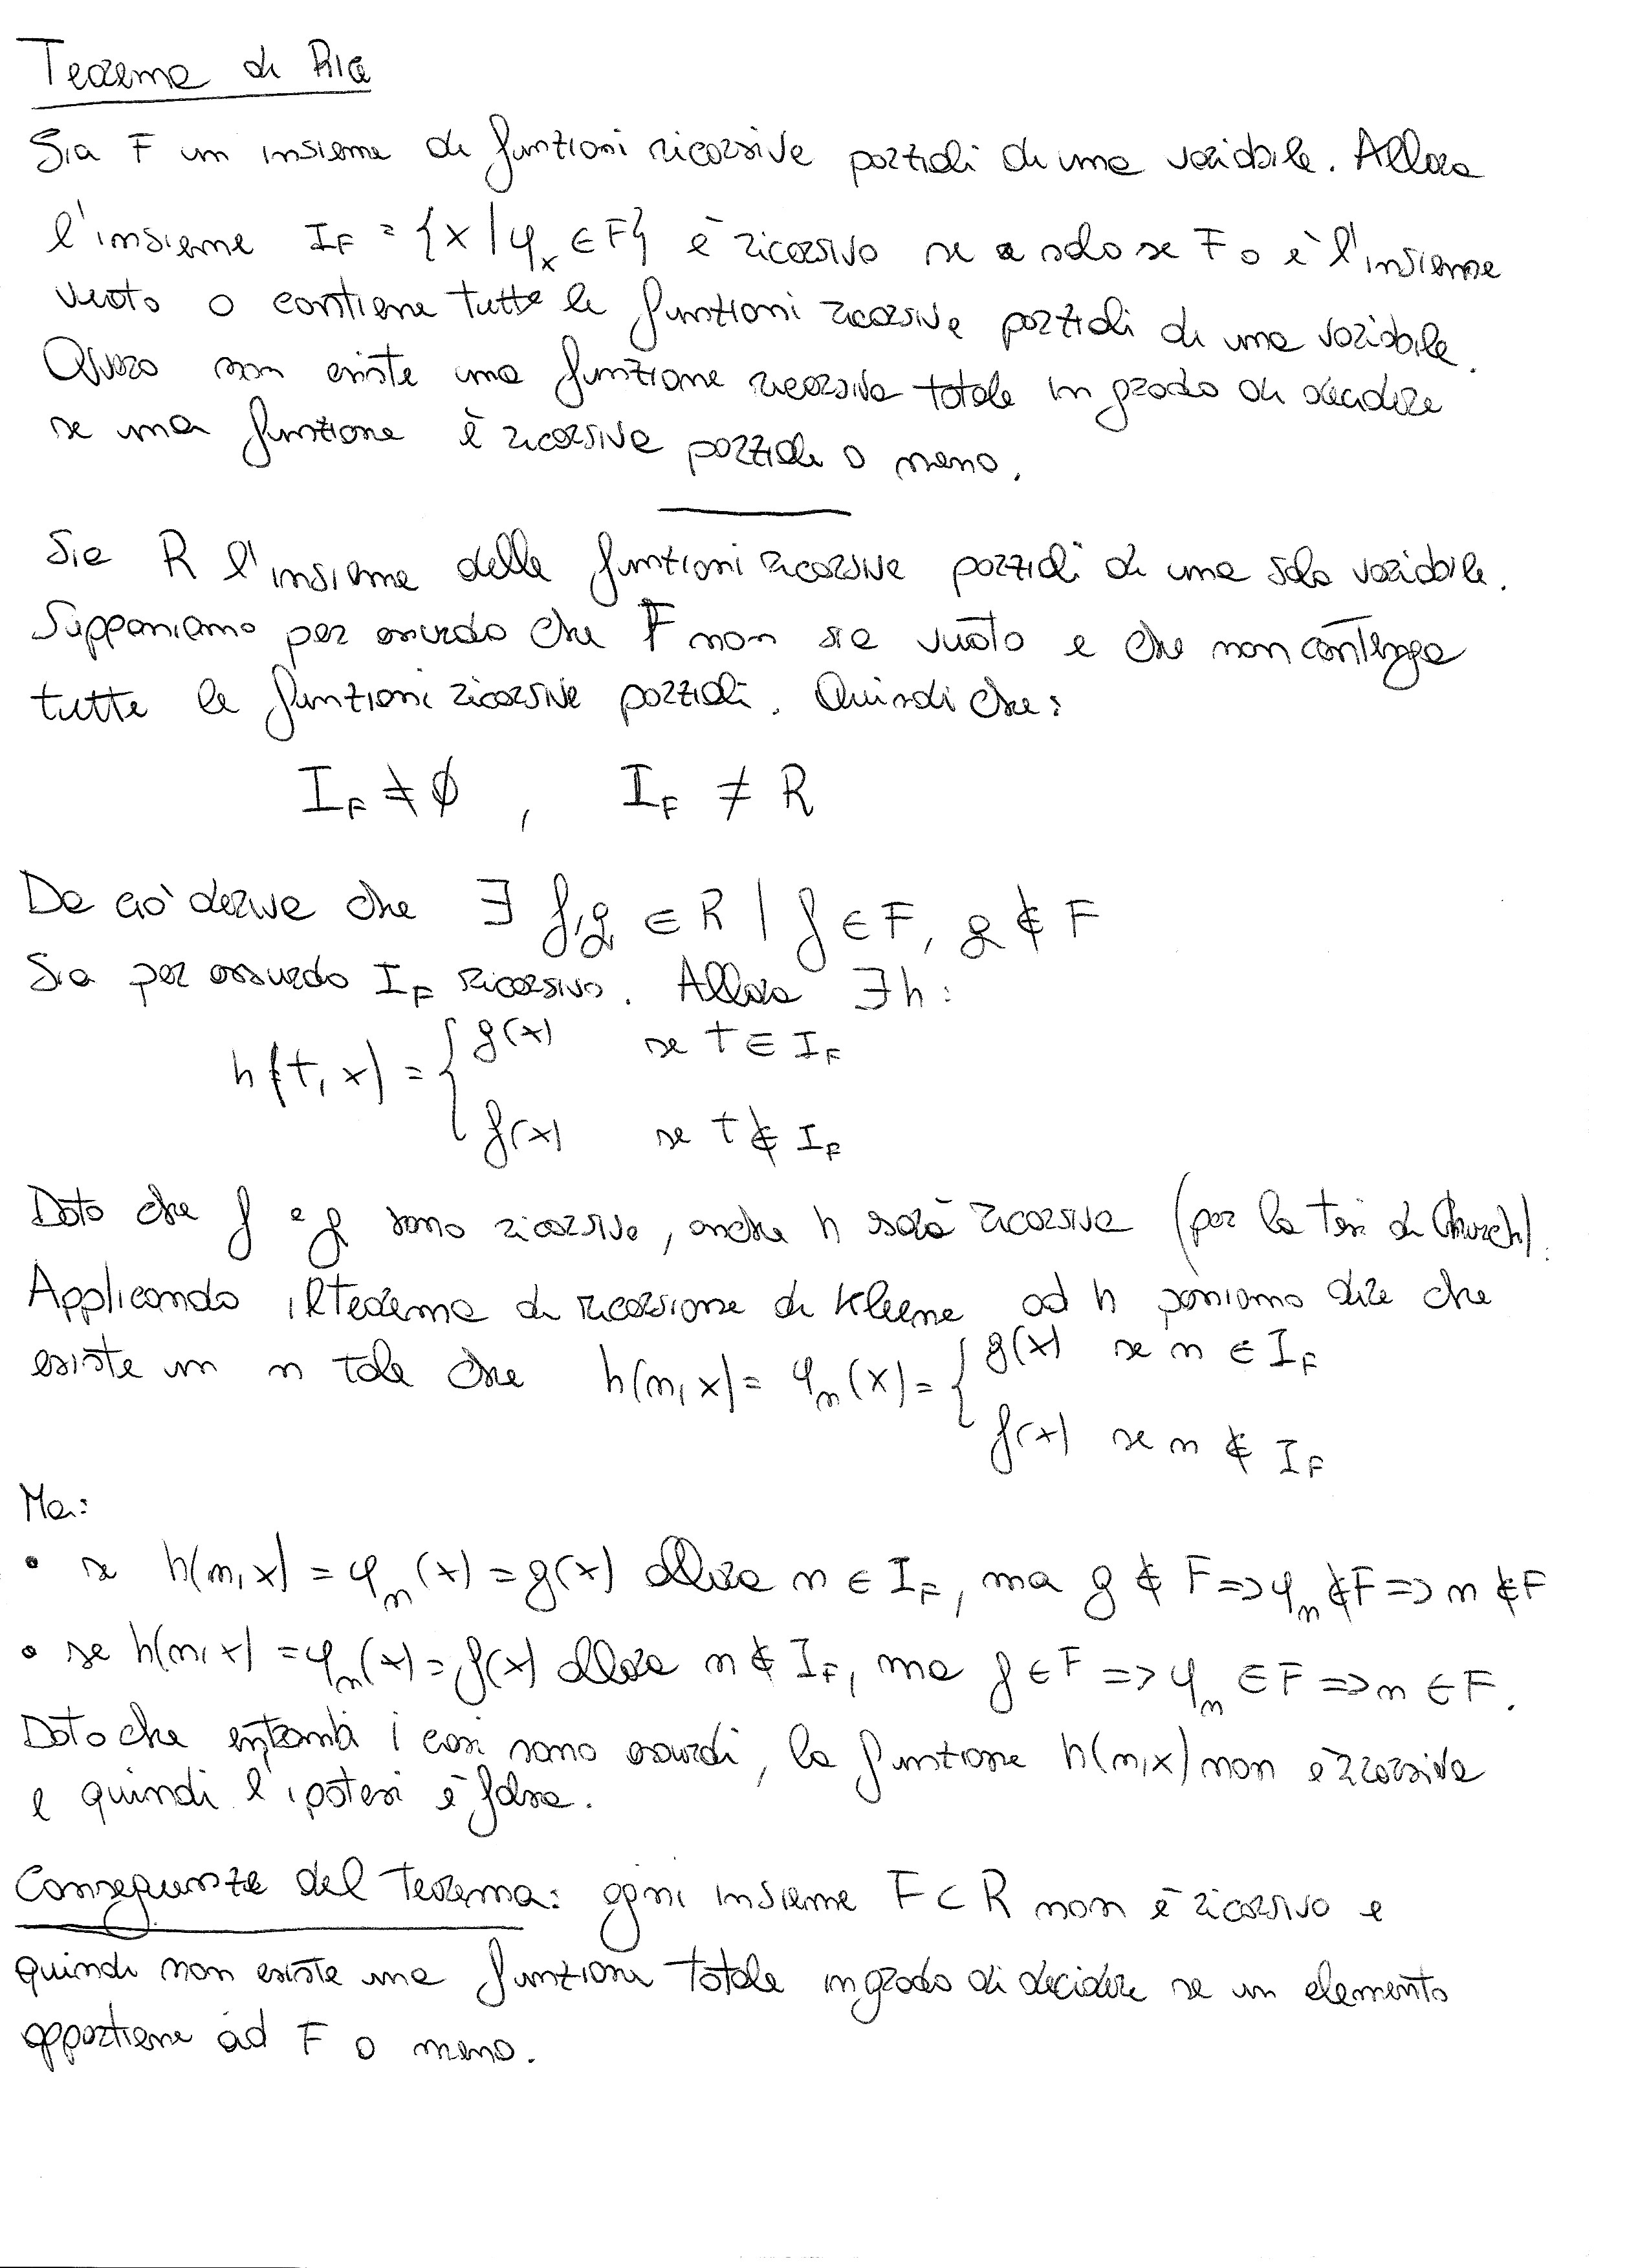 Teorema di Rice
Sia F un insieme di funzioni ricorsive parziali di una variabile. Allora
l'insieme I_F = {x | φ_x ∈ F} è ricorsivo se e solo se F o è l'insieme
vuoto o contiene tutte le funzioni ricorsive parziali di una variabile.
Ovvero non esiste una funzione ricorsiva totale in grado di decidere
se una funzione è ricorsiva parziale o meno.
Sia R l'insieme delle funzioni ricorsive parziali di una sola variabile.
Supponiamo per assurdo che F non sia vuoto e che non contenga
tutte le funzioni ricorsive parziali. Quindi che:
I_F ≠ ∅ , I_F ≠ R
Da ciò deriva che ∃ f,g ∈ R | f ∈ F, g ∉ F
Sia per assurdo I_F ricorsivo. Allora ∃h:
h(t, x) = { g(x) se t ∈ I_F
f(x) se t ∉ I_F
Dato che f e g sono ricorsive, anche h sarà ricorsiva (per la tesi di Church).
Applicando il teorema di ricorsione di Kleene ad h possiamo dire che
esiste un n tale che h(n, x) = φ_n(x) = { g(x) se n ∈ I_F
f(x) se n ∉ I_F
Ma:
• se h(n, x) = φ_n(x) = g(x) allora n ∈ I_F, ma g ∉ F => φ_n ∉ F => n ∉ F
• se h(n, x) = φ_n(x) = f(x) allora n ∉ I_F, ma f ∈ F => φ_n ∈ F => n ∈ F.
Dato che entrambi i casi sono assurdi, la funzione h(n,x) non è ricorsiva
e quindi l'ipotesi è falsa.
Conseguenze del teorema: ogni insieme F ⊂ R non è ricorsivo e
quindi non esiste una funzione totale in grado di decidere se un elemento
appartiene ad F o meno.